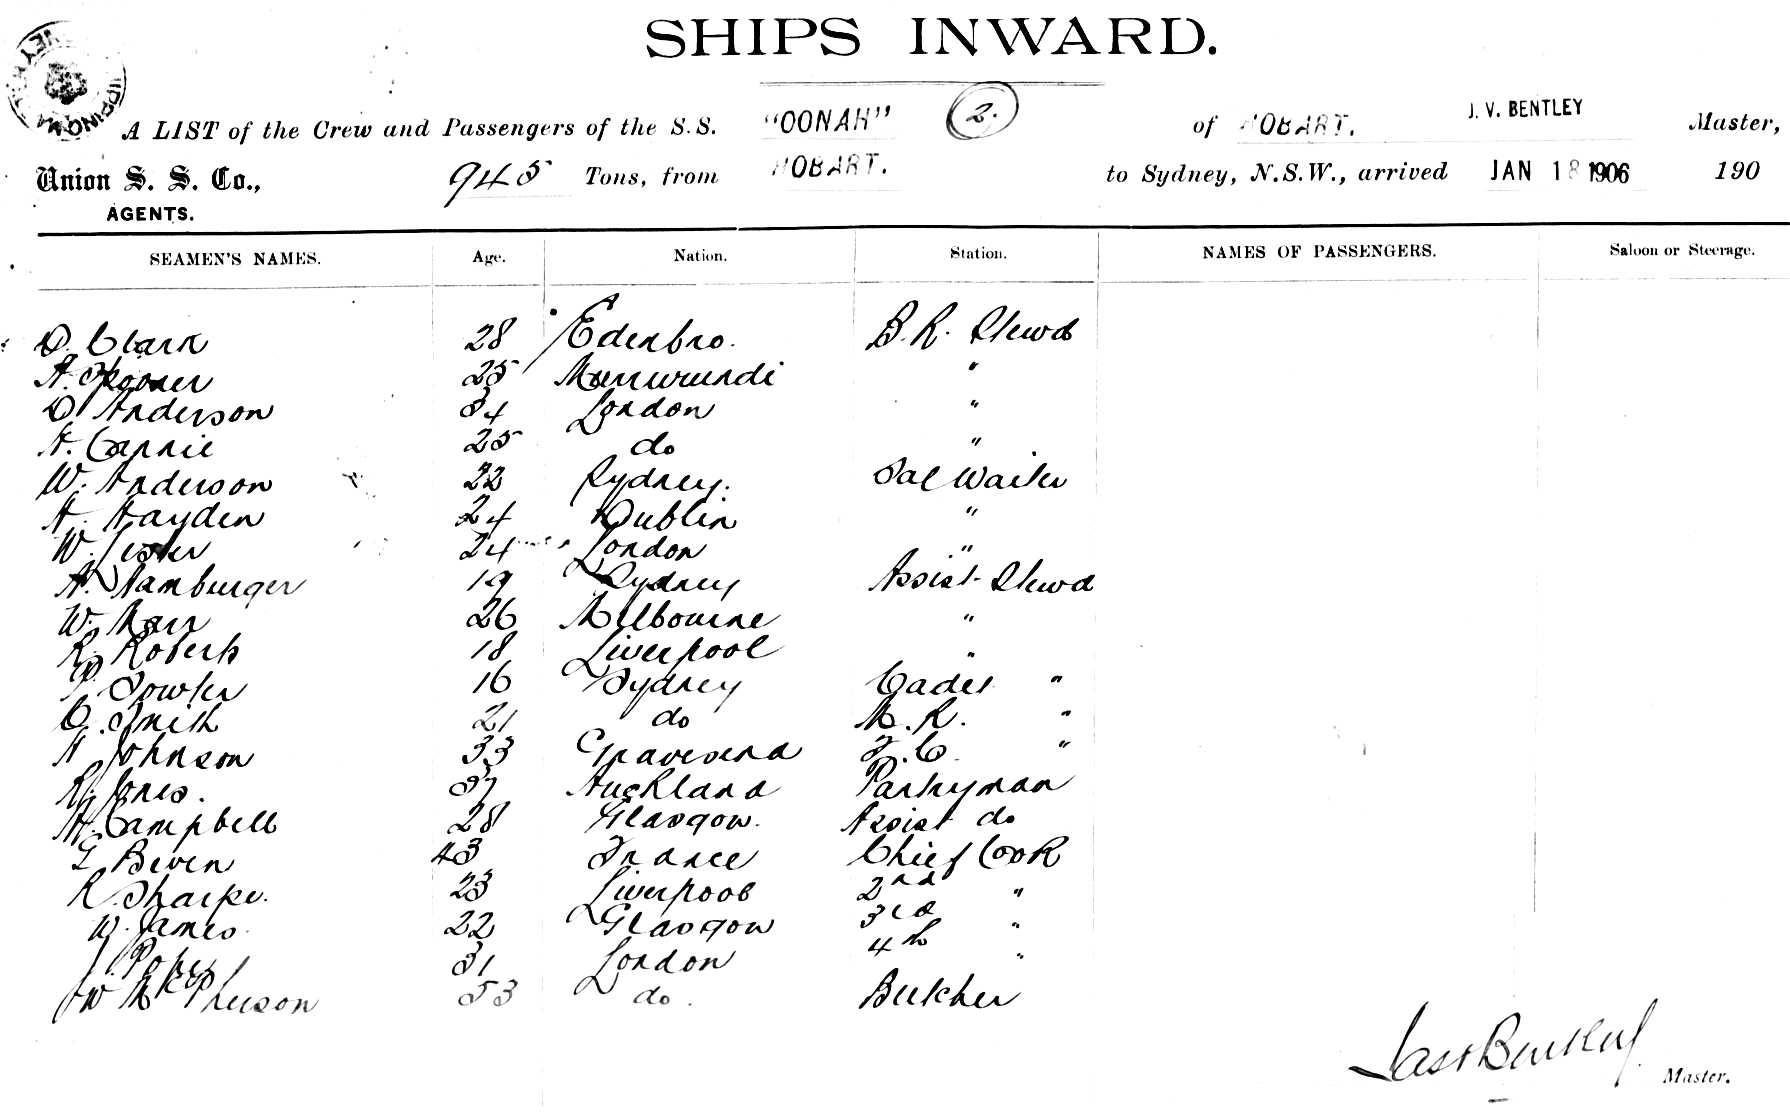 SHIPS INWARD.
A LIST of the Crew and Passengers of the S.S. "OONAH" 2. of HOBART. J. V. BENTLEY Master,
Union S. S. Co., 945 Tons, from HOBART. to Sydney, N.S.W., arrived JAN 18 1906 190
AGENTS.
SEAMEN'S NAMES. Age. Nation. Station. NAMES OF PASSENGERS. Saloon or Steerage.
D. Clark 28 Edenbro. B. R. Stewd
A. Spooner 25 Murrurundi "
D Anderson 34 London "
A. Cannie 25 do "
W. Anderson 22 Sydney. Sal Waiter
A. Hayden 24 Dublin "
W. Lister 24 London "
A. Hamburger 19 Sydney Assist. Stewd
W. Marr 26 Melbourne "
R. Roberts 18 Liverpool "
P. Fowler 16 Sydney Cadet "
C. Smith 21 do M. R. "
A Johnson 33 Gravesend F. C. "
R. Jones. 37 Auckland Pantryman
A. Campbell 28 Glasgow. Assist do
G Beven 43 France Chief Cook
R. Sharpe. 23 Liverpool 2nd "
W. James. 22 Glasgow 3rd "
J. Pope 31 London 4th "
W McPherson 53 do. Butcher
Jas V Bentley
Master.